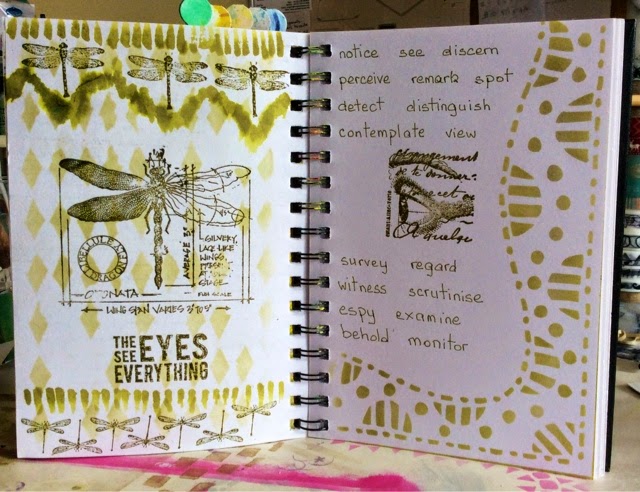 SILVERY,
LACE-LIKE
WINGS
AVERAGE 3"
ODONATA
FULL SCALE
WING SPAN VARIES 3" TO 5"
THE EYES
SEE
EVERYTHING
notice see discern
perceive remark spot
detect distinguish
contemplate view
survey regard
witness scrutinise
espy examine
behold monitor